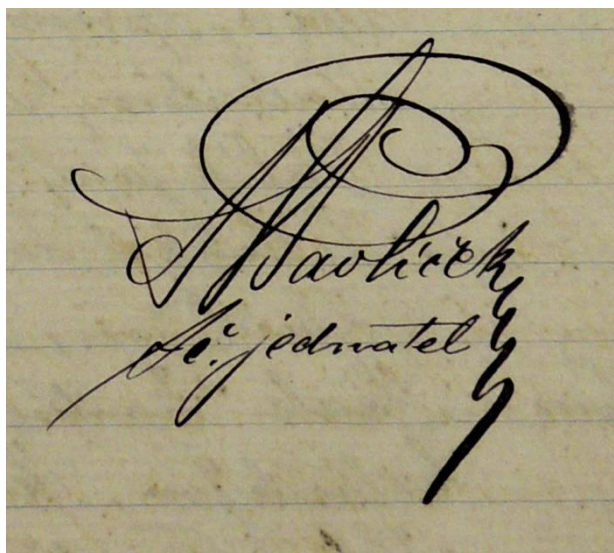 Pavlíček
tč. jednatel